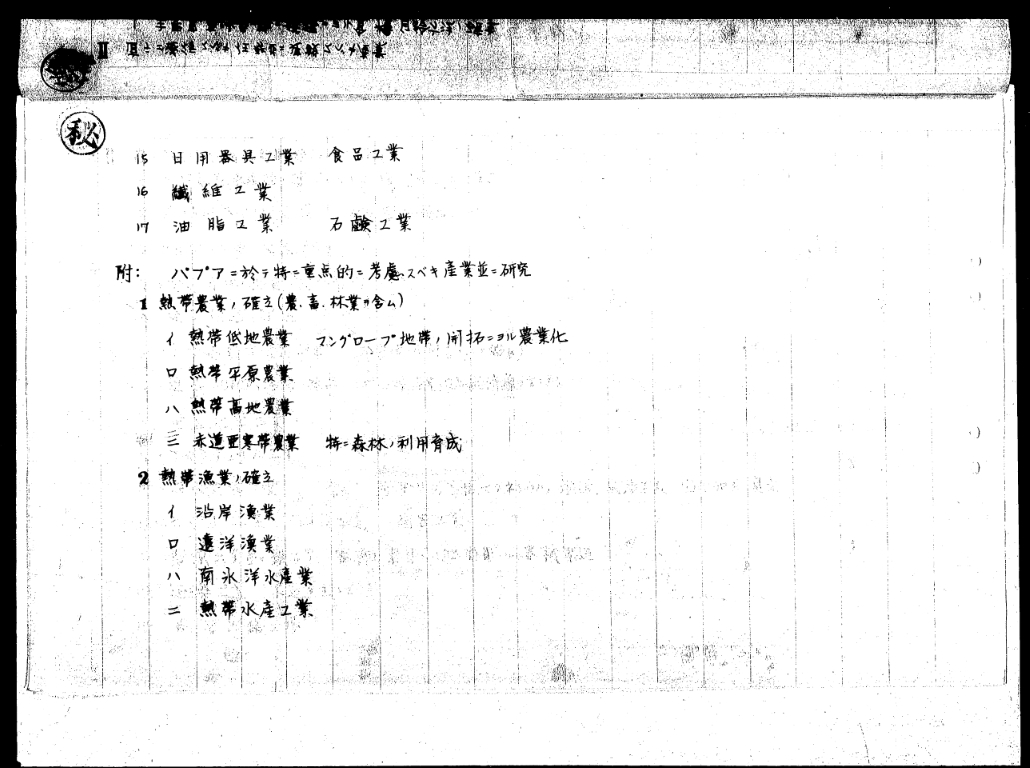 秘
15 日用器具工業 食品工業
16 纖維工業
17 油脂工業 石鹸工業
附: パプア=於テ特=重点的=考慮スベキ産業並=研究
1 熱帯農業ノ確立(農.畜.林業ヲ含ム)
イ 熱帯低地農業 マングローブ地帯ノ開拓=ヨル農業化
ロ 熱帯平原農業
ハ 熱帯高地農業
ニ 赤道亜寒帯農業 特=森林ノ利用育成
2 熱帯漁業ノ確立
イ 沿岸漁業
ロ 遠洋漁業
ハ 南氷洋水産業
ニ 熱帯水産工業